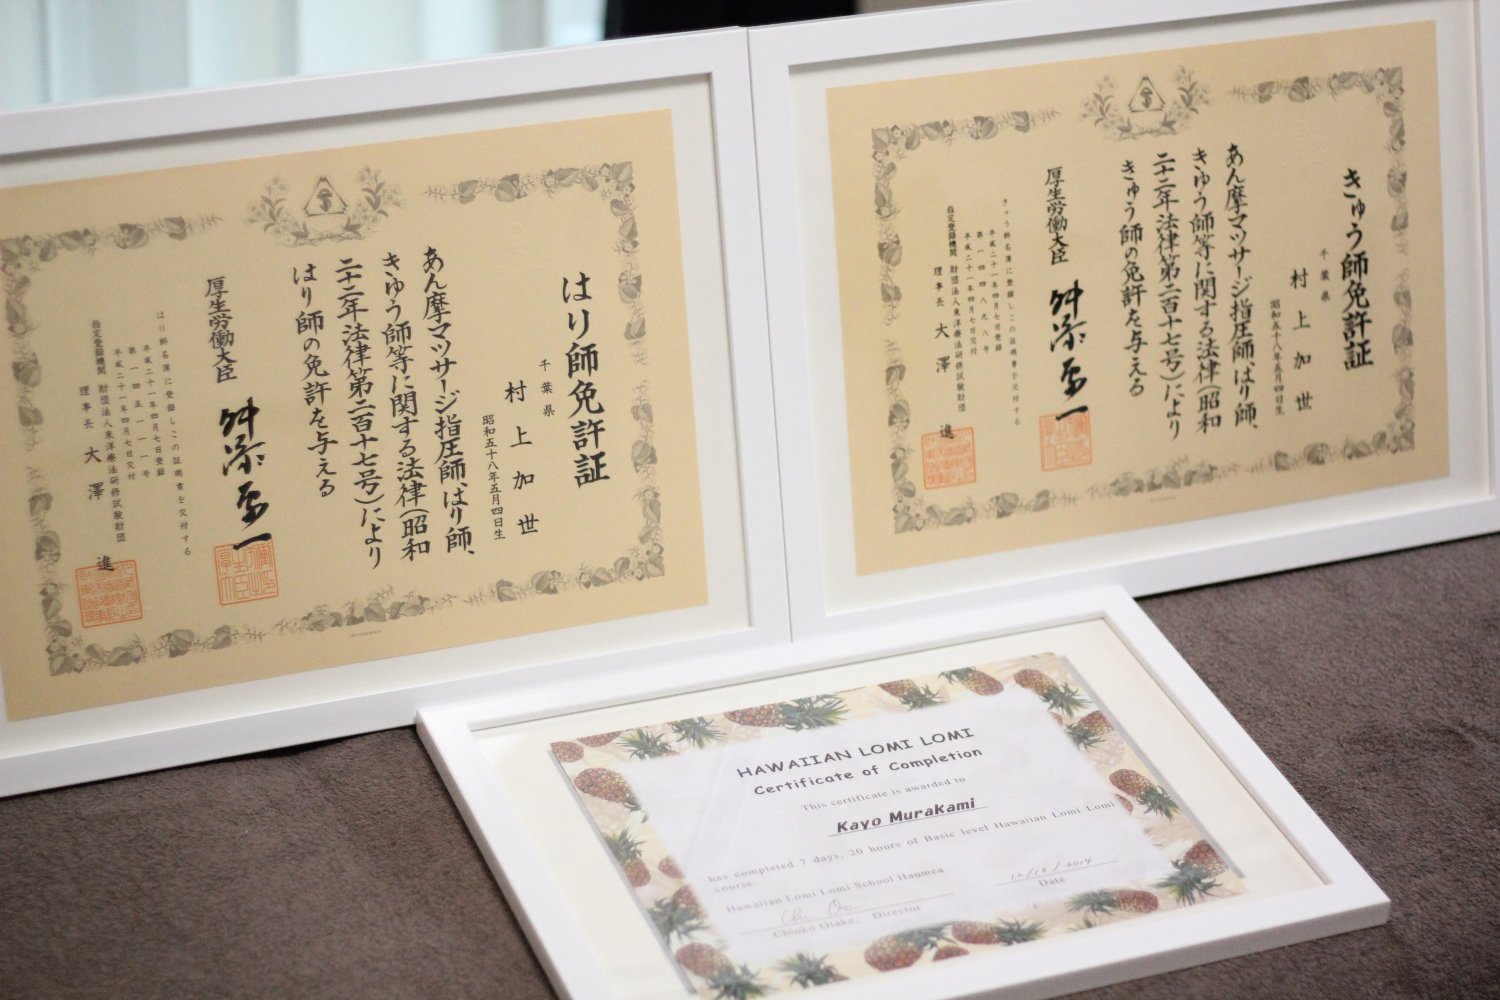 はり師免許証
千葉県
村上加世
昭和五十八年五月四日生
あん摩マツサージ指圧師、はり師、
きゆう師等に関する法律(昭和
二十二年法律第二百十七号)により
はり師の免許を与える
厚生労働大臣 舛添要一
はり師名簿に登録しこの証明書を交付する
平成二十一年四月七日登録
第一四五一一一号
平成二十一年四月七日交付
指定登録機関 財団法人東洋療法研修試験財団
理事長 大澤 進
きゅう師免許証
千葉県
村上加世
昭和五十八年五月四日生
あん摩マツサージ指圧師、はり師、
きゆう師等に関する法律(昭和
二十二年法律第二百十七号)により
きゅう師の免許を与える
厚生労働大臣 舛添要一
きゅう師名簿に登録しこの証明書を交付する
平成二十一年四月七日登録
第一四四八九八号
平成二十一年四月七日交付
指定登録機関 財団法人東洋療法研修試験財団
理事長 大澤 進
HAWAIIAN LOMI LOMI
Certificate of Completion
This certificate is awarded to
Kayo Murakami
has completed 7 days, 20 hours of Basic level Hawaiian Lomi Lomi
course.
Hawaiian Lomi Lomi School Haumea
12/18/2014
Date
Chioko Otake, Director